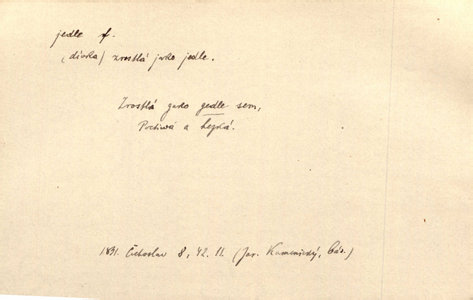 jedle f.
(dívka) zrostlá jako jedle.
Zrostlá gako gedle sem,
Poctiwá a hezká.
1831. Čechoslav 8, 42. 11. (Jar. Kamenický, Bás.)